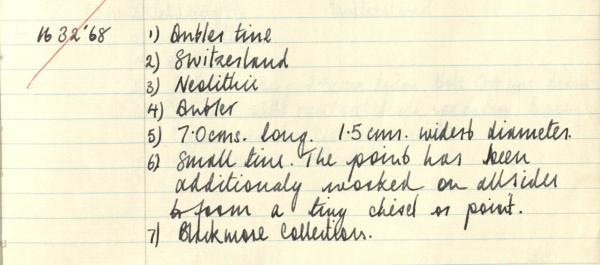 1632'68 1) Antler tine
2) Switzerland
3) Neolithic
4) Antler
5) 7.0cms. long. 1.5cms. widest diameter.
6) Small tine. The point has been
additionaly worked on allsides
to form a tiny chisel or point.
7) Blackmore Collection.